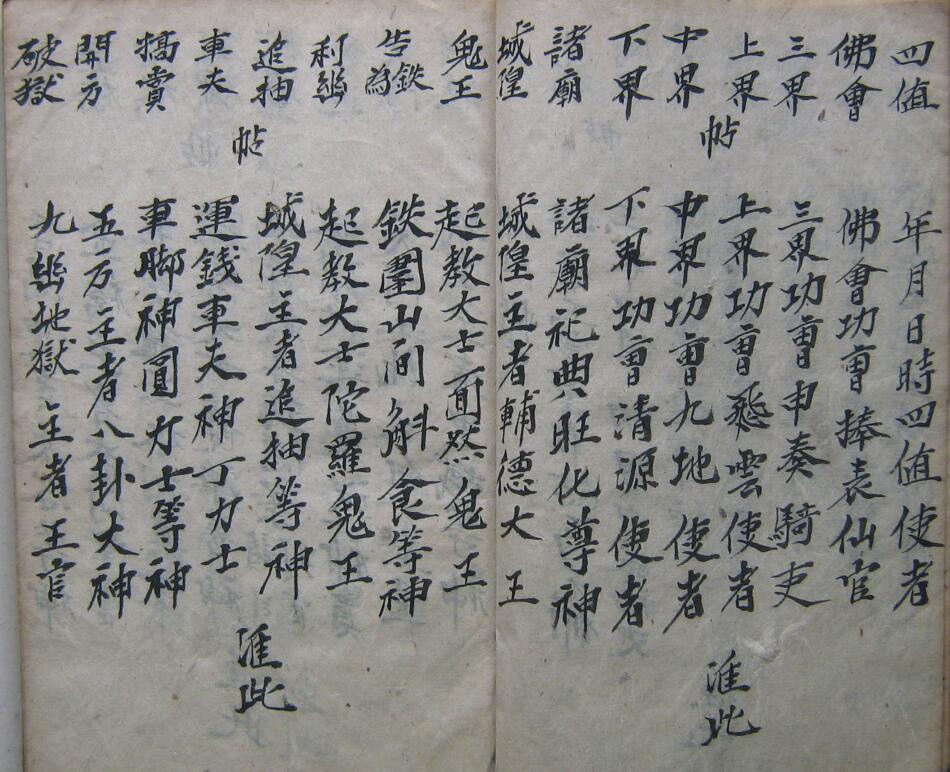 四值
佛會
三界
上界
中界
下界
諸廟
城隍
帖
年月日時四值使者
佛會功曹捧表仙官
三界功曹申奏騎吏
上界功曹飛雲使者
中界功曹九地使者
下界功曹清源使者
諸廟祀典旺化尊神
城隍主者輔德大王
準此
鬼王
告鉄為
利幽
追抽
車夫
犒賞
開方
破獄
帖
起教大士面然鬼王
鉄圍山间斛食等神
起教大士陀羅鬼王
城隍主者追抽等神
運錢車夫神丁力士
車脚神圓力士等神
五方主者八卦大神
九幽地獄主者王官
準此